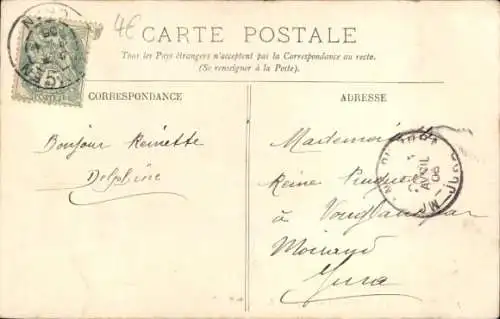 4€
CARTE POSTALE
Tous les Pays étrangers n'acceptent pas la Correspondance au recto.
(Se renseigner à la Poste).
CORRESPONDANCE
ADRESSE
Bonjour Reinette
Delphine
Mademoiselle
Reine
à
Moirans
Jura
AVRIL
06